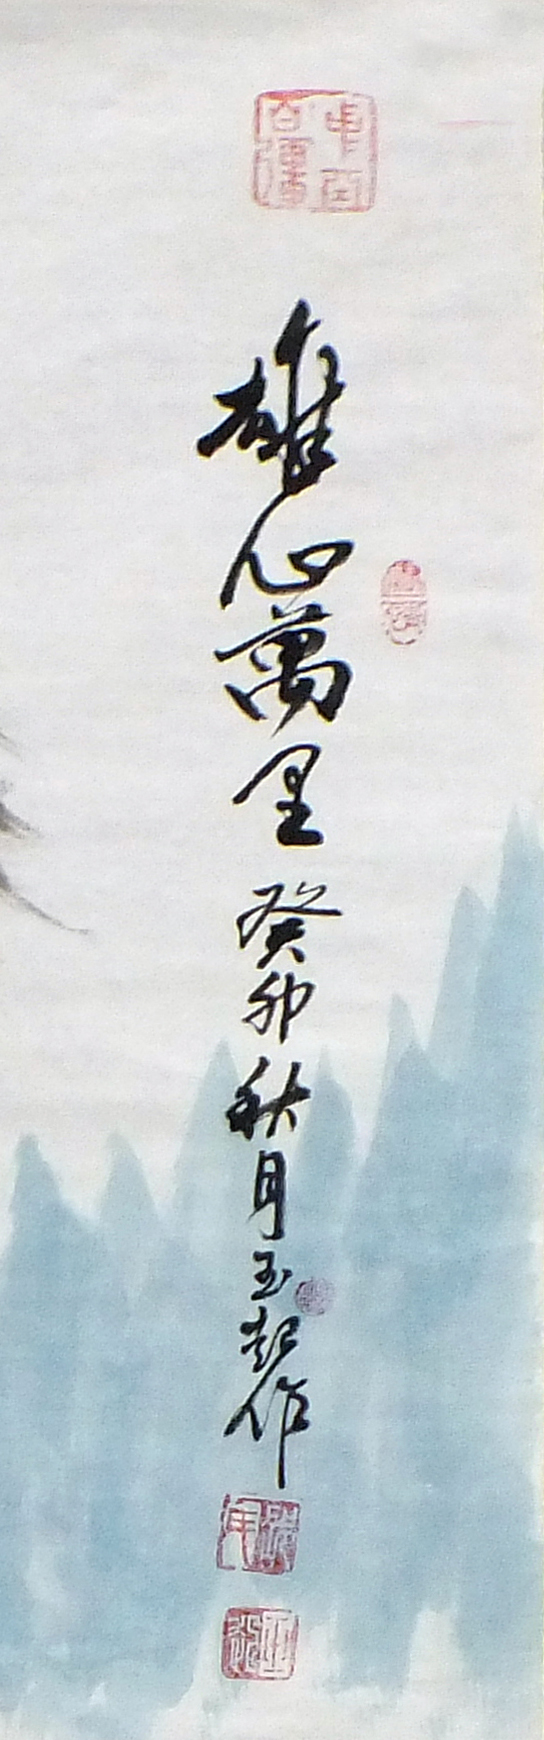 雄心萬里 癸卯秋月玉起作